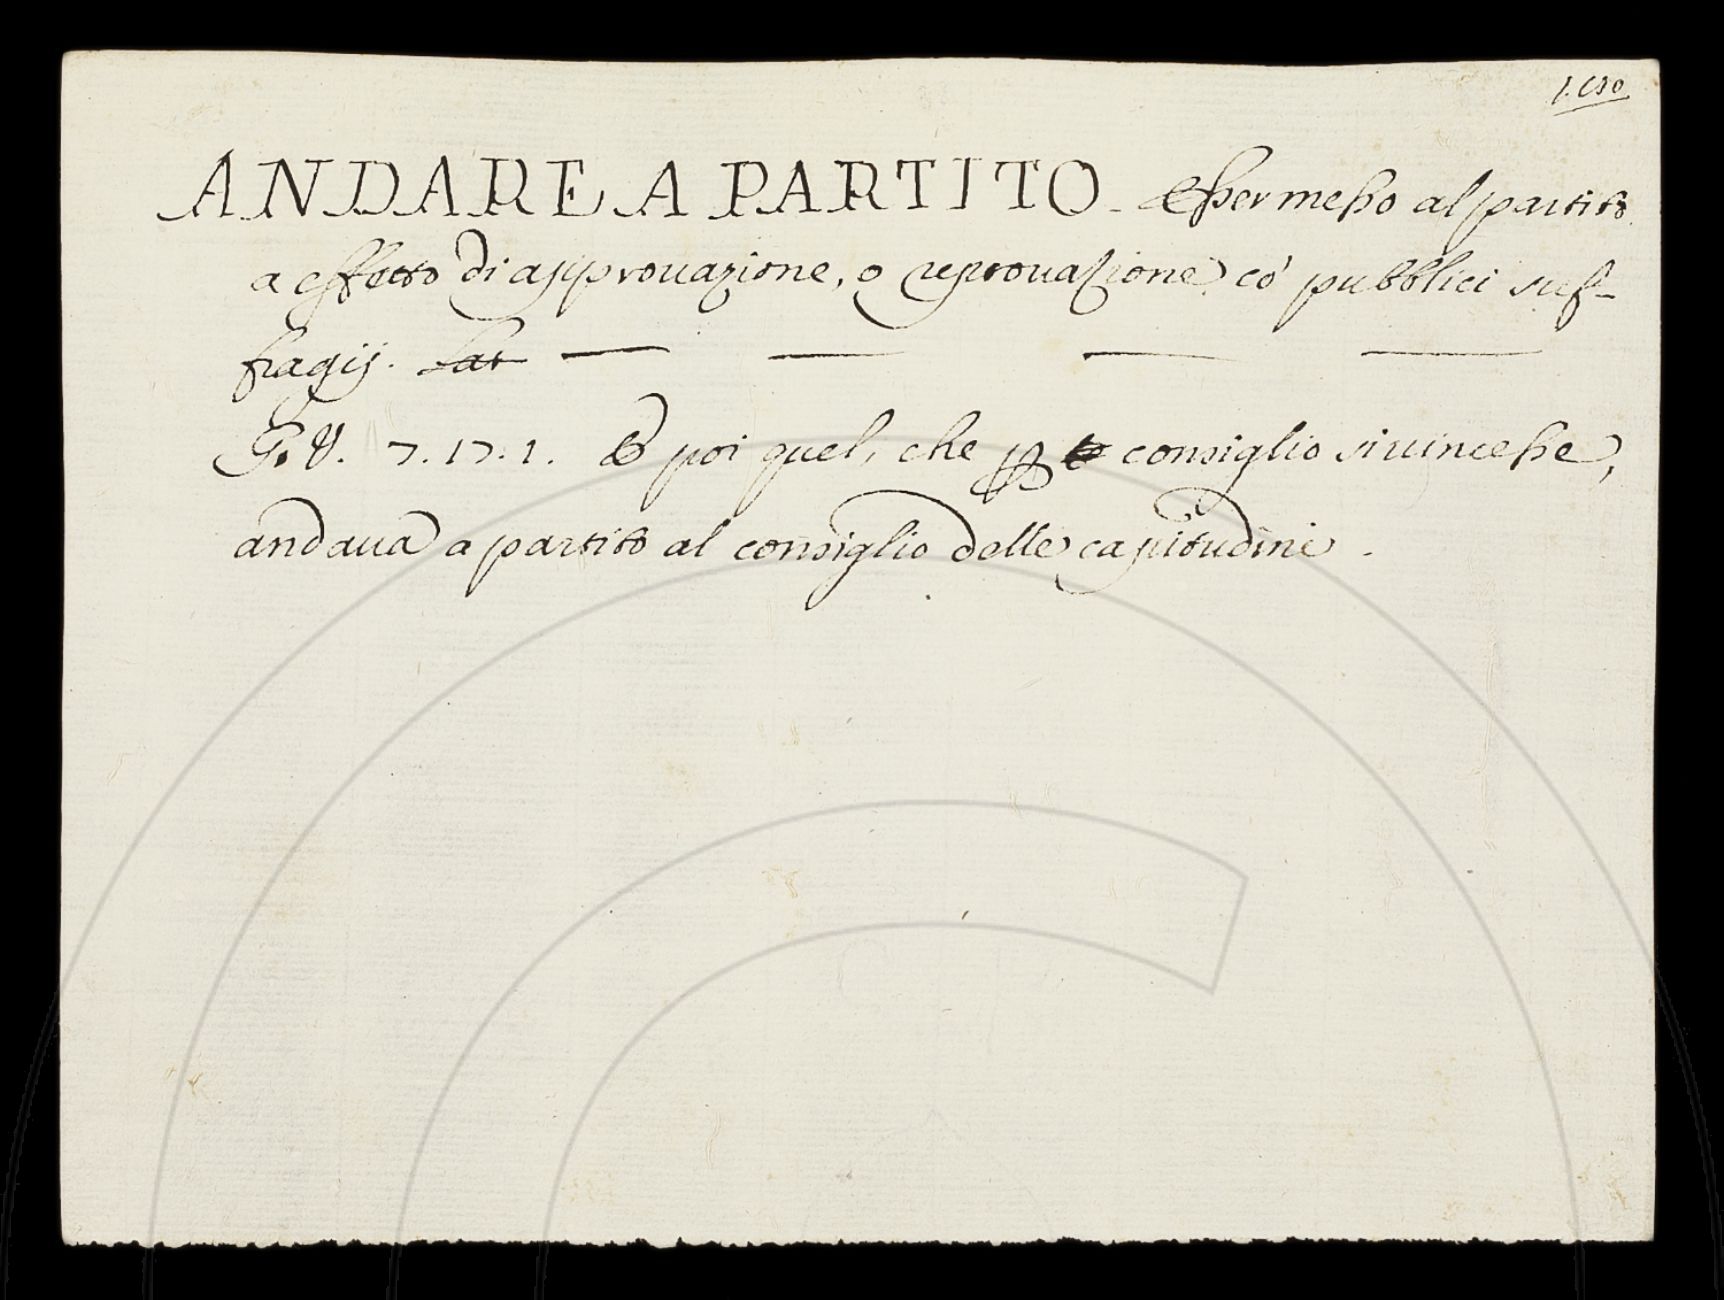 ANDARE A PARTITO. Esser messo al partito
a effetto di approuazione, o reprouazione co' pubblici suf-
fragij. Lat
G. V. 7. 17. 1. E poi quel, che p consiglio si uincesse,
andaua a partito al consiglio delle capitudini.